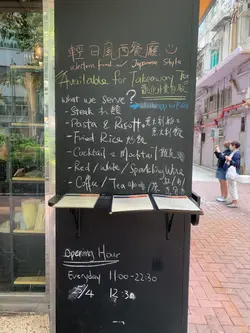 輕日風西餐廳
Western food w/ Japanese Style
Available for Takeaway
What we serve?
- Steak 扒類
- Pasta & Risotto 意大利粉、意大利飯
- Fried Rice 炒飯
- Cocktail & Mocktail
- Red / White / Sparkling Wine
- Coffee / Tea 咖啡 / 茶
Opening Hour
Everyday 11:00-22:30